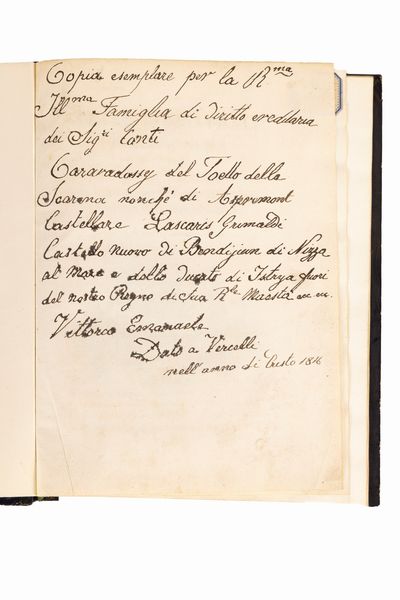 Copia esemplare per la R.ma
Ill.ma Famiglia di diritto ereditaria
dei Sig.ri Conti
Caravadossy del Toetto della
Scarena nonchè di Aspremont
Castellare Lascaris Grimaldi
Castello nuovo di Bendijiun di Nizza
al Mare e dello Ducato di Istrya fuori
del nostro Regno di Sua R.le Maestà
Vittorio Emanuele
Dato a Vercelli
nell'anno di Cristo